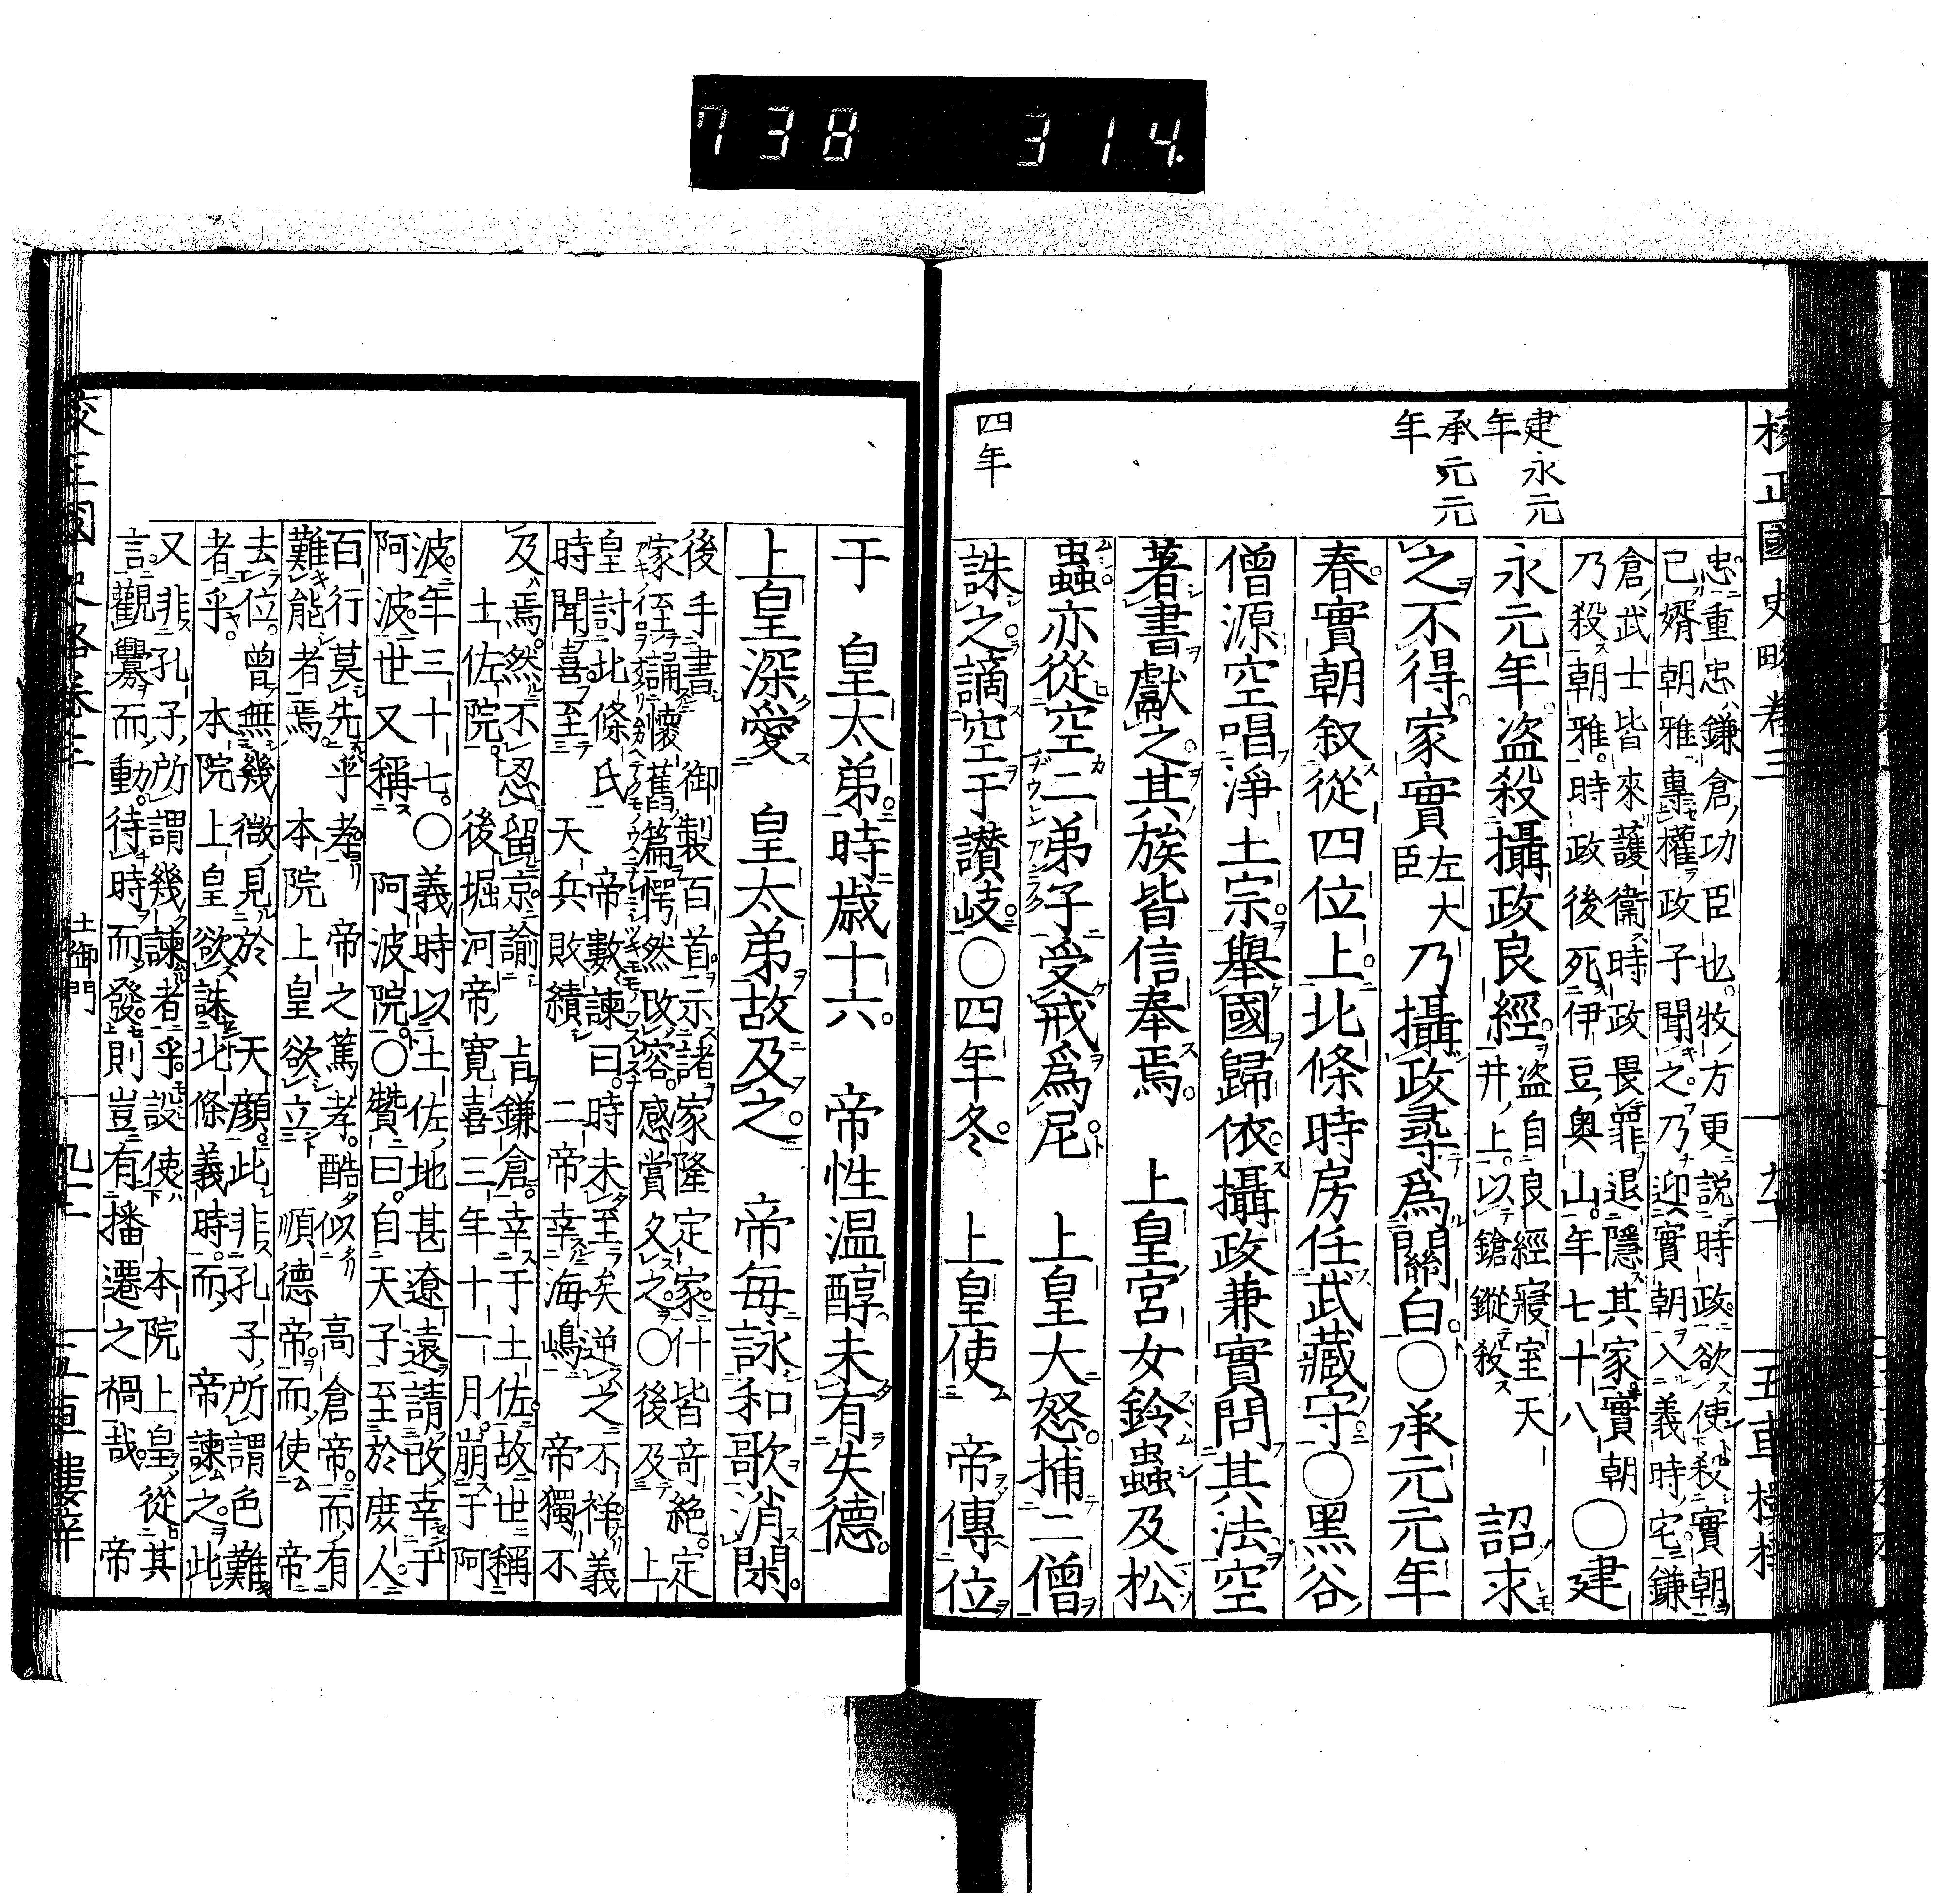 738 314.
校正國史略卷三
九十二
五車樓梓
建永元
年
承元元
年
四年
忠重忠鎌倉功臣也牧方更説時政欲使殺實朝
己婿朝雅專權政子聞之乃迎實朝入義時宅鎌
倉武士皆來護衞時政畏罪退隱其家實朝
乃殺朝雅時政後死伊豆奥山年七十八
〇建
永元年盗殺攝政良經
盗自良經寢室天
井上以鎗鏦殺
詔求
之不得家實
左大
臣
乃攝政尋爲關白〇承元元年
春實朝叙從四位上北條時房任武藏守〇黑谷
僧源空唱淨土宗擧國歸依攝政兼實問其法空
著書獻之其族皆信奉焉 上皇宮女鈴蟲及松
蟲亦從空二弟子受戒爲尼 上皇大怒捕二僧
誅之謫空于讃岐〇四年冬 上皇使 帝傳位
于 皇太弟時歳十六 帝性温醇未有失德
上皇深愛 皇太弟故及之 帝毎詠和歌消閑
後手書 御製百首示諸家隆定家什皆竒絶定
家至誦懷舊篇愕然改容感賞久之〇後及上
皇討北條氏 帝數諫曰時未至矣逆之不祥義
時聞喜至 天兵敗績 二帝幸海嶋 帝獨不
及焉然不忍留京諭旨鎌倉幸于土佐故世稱
土佐院 後堀河帝寛喜三年十一月崩于阿
波年三十七〇義時以土佐地甚遼遠請改幸于
阿波世又稱阿波院〇贊曰自天子至於庶人
百行莫先乎孝 帝之篤孝酷似 高倉帝而有
難能者焉 本院上皇欲立 順德帝而使 帝
去位曾無幾微見於 天顔此非孔子所謂色難
者乎 本院上皇欲誅北條義時而 帝諫之此
又非孔子所謂幾諫者乎設使 本院上皇從其
言觀釁而動待時而發則豈有播遷之禍哉 帝
土御門
五車樓梓